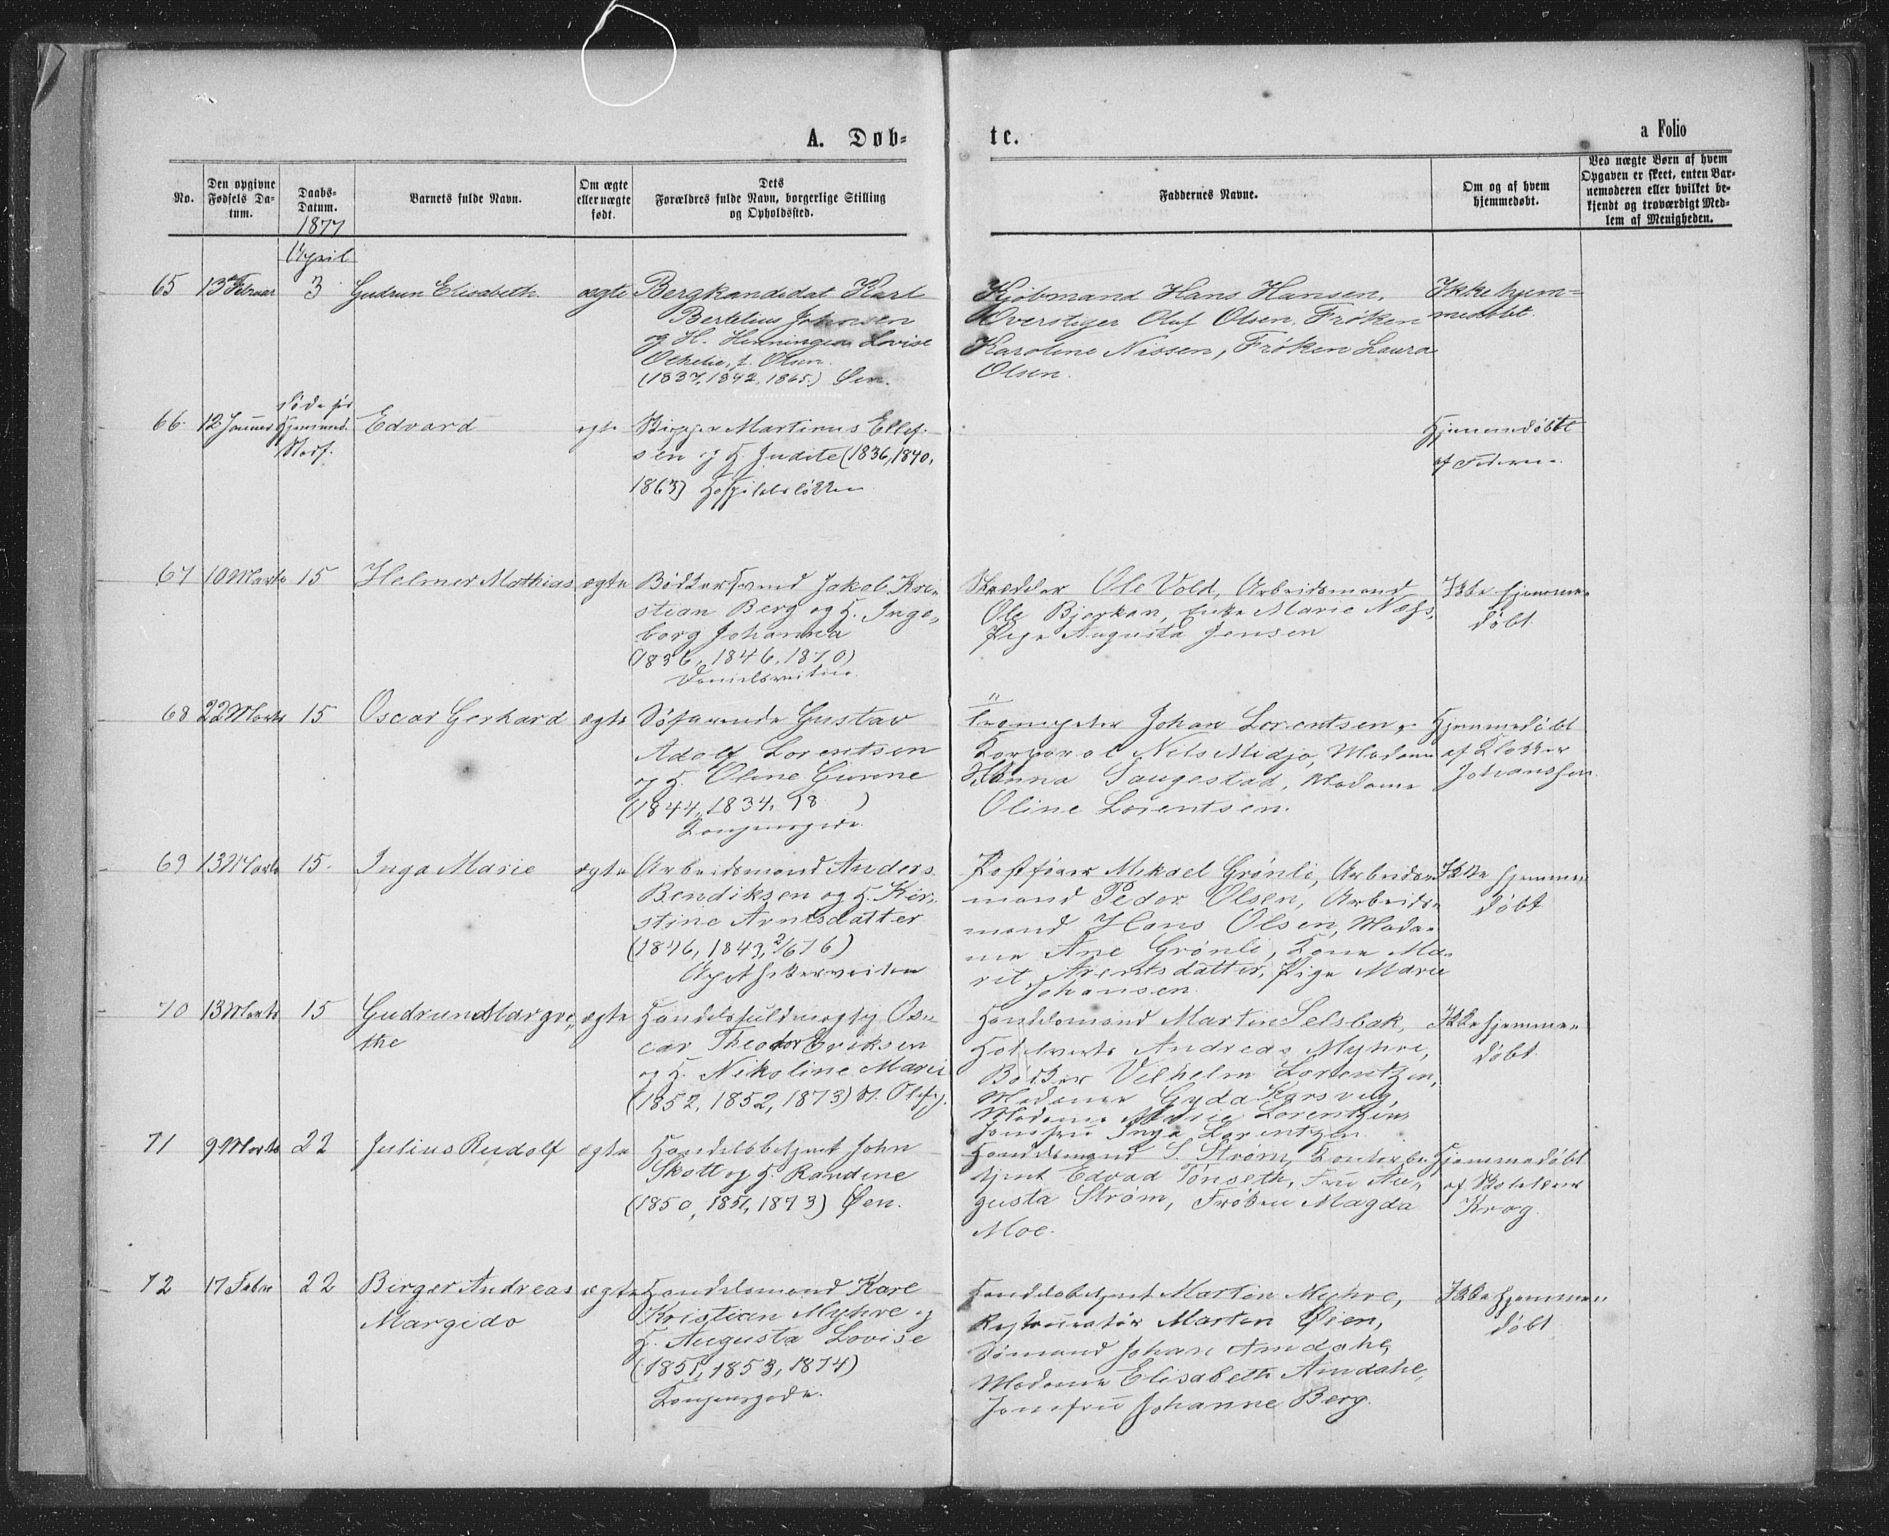 A. Døb=
tc.
a Folio
No.
Den opgivne
Fødsels Da-
tum.
Daabs-
Datum.
1877
Barnets fulde Navn.
Om ægte
eller uægte
født.
Dets
Forældres fulde Navn, borgerlige Stilling
og Opholdssted.
Faddernes Navne.
Om og af hvem
hjemmedøbt.
Ved uægte Børn af hvem
Opgaven er skeet, enten Bar-
nemoderen eller hvilket be-
kjendt og troværdigt Med-
lem af Menigheden.
April
65 13 Februar 3 Gudrun Elisabeth ægte Bergkandidat Karl
Bertelius Johnsen
og H. Henningea Lovise
Othelie, f. Olsen.
(1837, 1842, 1865.) Øen.
Kjøbmand Hans Hansen,
Overstiger Oluf Olsen, Frøken
Karoline Nissen, Frøken Laura
Olsen.
Ikke hjem=
medøbt.
66 12 Januar døde før
Hjemmed.
Stadf.
Edvard ægte Martinus Ellef-
sen og H. Judite (1836, 1840,
1863) Hospitalsløkken
Hjemmedøbt
af Faderen
67 10 Marts 15 Helmer Mathias ægte Bødkersvend Jakob Kri-
stian Berg og H. Inge-
borg Johanna
(1836, 1846, 1870)
Danielsveiten
Skrædder Ole Vold, Arbeidsmand
Ole Bjerkan, Enke Marie Næss,
Pige Augusta Jensen
Ikke hjemme-
døbt
68 22 Marts 15 Oscar Gerhard ægte Søfarende Gustav
Adolf Lorentsen
og H. Oline Gurine
(1844, 1834, 18 )
Kongensgade.
Trompeter Johan Lorentsen,
Korporal Nels Midjo, Madame
Hanna Saugestad, Madame
Oline Lorentsen.
Hjemmedøbt
af Klokker
Johanssen
69 13 Marts 15. Inga Marie ægte Arbeidsmand Anders
Bendiksen og H. Kir-
stine Arntsdatter
(1846, 1843, 2/6 76)
Apothekerveiten
Postfører Mikael Grønli, Arbeids-
mand Peder Olsen, Arbeids-
mand Hans Olsen, Mada-
me Ane Grønli, Kone Ma-
rit Arentsdatter, Pige Marie
Johansen.
Ikke hjemme-
døbt
70 13 Marts 15 Gudrun Margre-
the
ægte Handelsfuldmægtig Os-
car Theodor Eriksen
og H. Nikoline Marie
(1852, 1852, 1873) St. Olsfg.
Handelsmand Martin Selsbak,
Hotelvært Andreas Myhre,
Bødker Vilhelm Lorentzen,
Madame Gyda Karsveg,
Madame Marie Lorentzen
Jomfru Inga Lorentzen
Ikke hjemme-
døbt
71 9 Marts 22 Julius Rudolf ægte Handelsbetjent John
Skott og H. Randine
(1850, 1851, 1873) Øen.
Handelsmand S. Strøm, Kontorbe-
tjent Edvad Tønseth, Fru Au-
gusta Strøm, Frøken Magda
Moe.
Hjemmedøbt
af
Krog.
72 17 Febr 22 Birger Andreas
Margido
ægte Handelsmand Karl
Kristian Myhre og
H. Augusta Lovise
(1851, 1853, 1874)
Kongensgade.
Handelsbetjent Martin Myhre,
Restauratør Morten Øien,
Sømand Johan Amdahl,
Madame Elisabeth Amdahl,
Jomfru Johanne Berg.
Ikke hjemme-
døbt